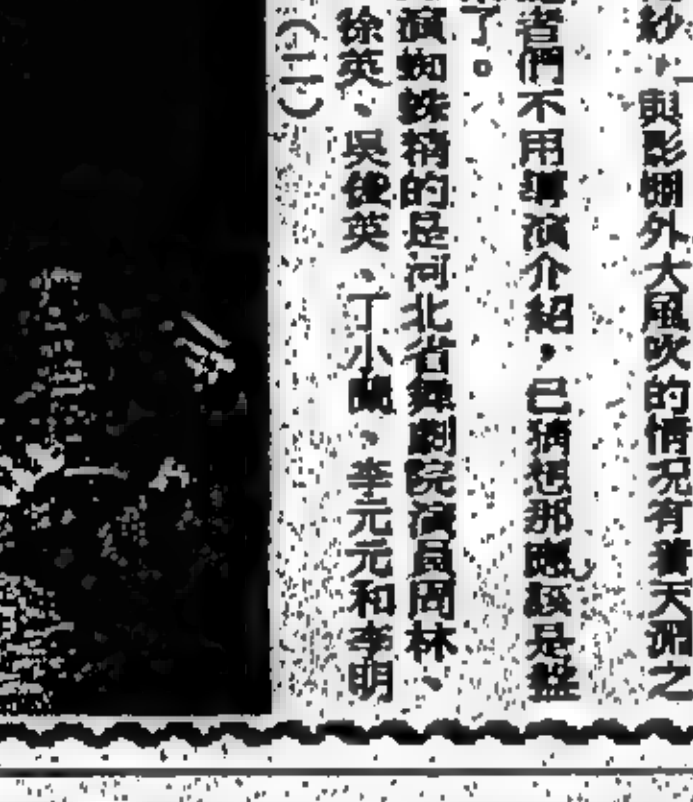 紗，與影棚外大風吹的情况有着天淵之
者們不用導演介紹，已猜想那應該是盤
了。
演蜘蛛精的是河北省舞劇院演員周林、
徐英、吳俊英、丁小　、李元元和李明
（二）